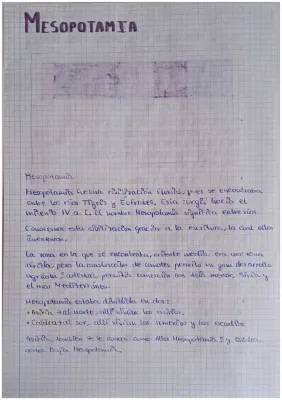 MESOPOTAMIA
Mesopotamia
Mesopotamia fue una civilización fluvial, pues se encontraba
entre los ríos Tigris y Eufrates. Esta surgió hacia el
milenio IV a. C. El nombre Mesopotamia significa entre ríos.
Conocemos esta civilización gracias a la escritura, la cual ellos
inventaron.
La zona en la que se encontraba, oriente medio, era una zona
árida, pero la construcción de canales permitió un gran desarrollo
agrícola. permitió conexión con Asia menor, Siria y
el mar Mediterráneo.
Mesopotamia estaba dividida en dos:
• Asiria al norte, allí vivían los asirios.
• Caldea al sur, allí vivían los sumerios y los acadios.
Asiria, también se le conoce como Alta Mesopotamia y Caldea
como Baja Mesopotamia.